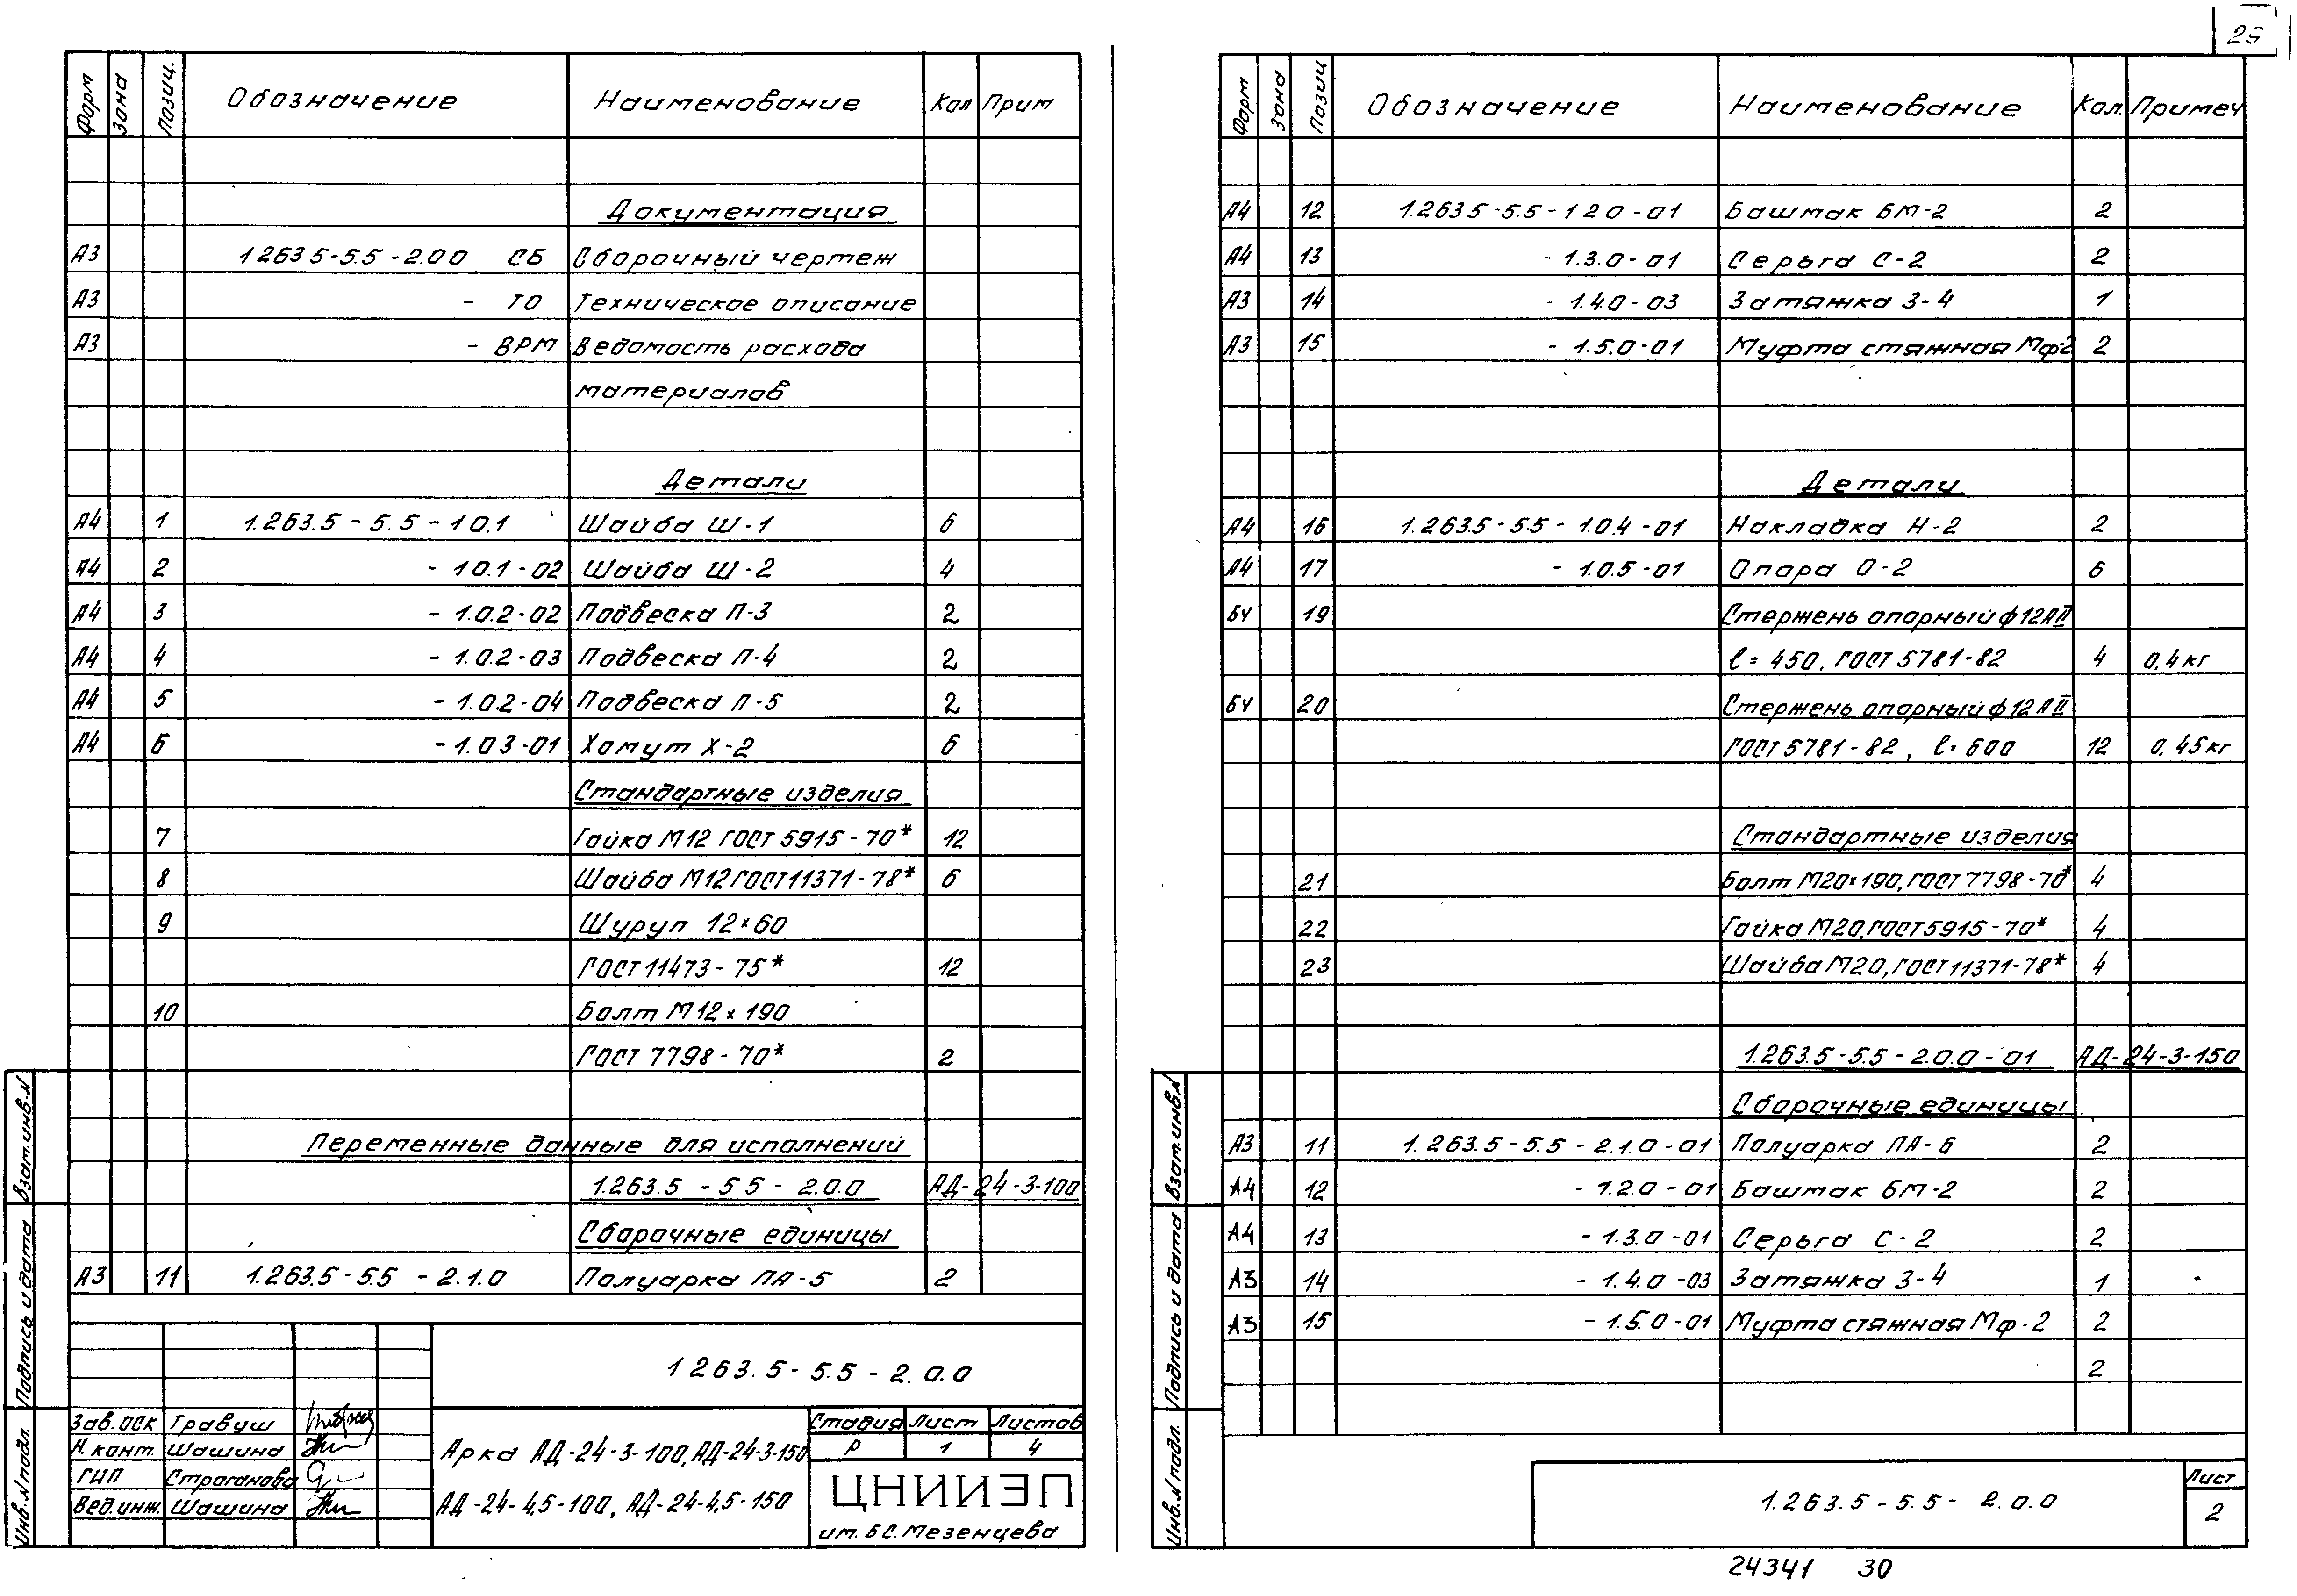 25
Форм Зона Позиц. Обозначение Наименование Кол Прим
Документация
А3 1263 5-5.5-2.00 СБ Сборочный чертеж
А3 - ТО Техническое описание
А3 - ВРМ Ведомость расхода
материалов
Детали
А4 1 1.263.5-5.5-10.1 Шайба Ш-1 6
А4 2 -10.1-02 Шайба Ш-2 4
А4 3 -1.0.2-02 Подвеска П-3 2
А4 4 -1.0.2-03 Подвеска П-4 2
А4 5 -1.0.2-04 Подвеска П-5 2
А4 6 -1.03-01 Хомут Х-2 6
Стандартные изделия
7 Гайка М12 ГОСТ 5915-70* 12
8 Шайба М12 ГОСТ 11371-78* 6
9 Шуруп 12×60
ГОСТ 11473-75* 12
10 Болт М12×190
ГОСТ 7798-70* 2
Переменные данные для исполнений
1.263.5-5 5-2.0.0 АД-24-3-100
Сборочные единицы
А3 11 1.263.5-5.5-2.1.0 Полуарка ПА-5 2
1 263.5-5.5-2.0.0
Зав.ОСК Травуш
Н.конт. Шашина
ГИП Строганова
Вед.инж. Шашина
Арка АД-24-3-100, АД-24-3-150
АД-24-4,5-100, АД-24-4,5-150
Стадия Лист Листов
Р 1 4
ЦНИИЭП
им. Б.С. Мезенцева
Инв.N подл. Подпись и дата Взам.инв.N
Форм Зона Позиц Обозначение Наименование Кол. Примеч
А4 12 1.263.5-5.5-1 2 0-01 Башмак БМ-2 2
А4 13 -1.3.0-01 Серьга С-2 2
А3 14 -1.4.0-03 Затяжка З-4 1
А3 15 -1.5.0-01 Муфта стяжная Мф-2 2
Детали
А4 16 1.263.5-5.5-1.0.4-01 Накладка Н-2 2
А4 17 -1.0.5-01 Опора О-2 6
БЧ 19 Стержень опорный ф12АII
ℓ=450, ГОСТ 5781-82 4 0,4кг
БЧ 20 Стержень опорный ф12АII
ГОСТ 5781-82, ℓ=600 12 0,45кг
Стандартные изделия
21 Болт М20×190, ГОСТ 7798-70* 4
22 Гайка М20, ГОСТ 5915-70* 4
23 Шайба М20, ГОСТ 11371-78* 4
1.263.5-5.5-2.0.0-01 АД-24-3-150
Сборочные единицы
А3 11 1.263.5-5.5-2.1.0-01 Полуарка ПА-6 2
А4 12 -1.2.0-01 Башмак БМ-2 2
А4 13 -1.3.0-01 Серьга С-2 2
А3 14 -1.4.0-03 Затяжка З-4 1
А3 15 -1.5.0-01 Муфта стяжная Мф-2 2
2
1.263.5-5.5-2.0.0
Лист
2
Инв.N подл. Подпись и дата Взам.инв.N
24341 30